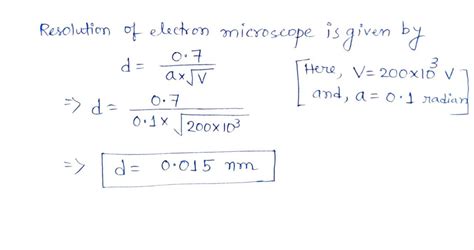 Resolution of electron microscope is given by
d = 0.7 / a×√V [Here, V= 200×10³ V
and, a = 0.1 radian]
=> d = 0.7 / 0.1× √200×10³
=> d = 0.015 nm